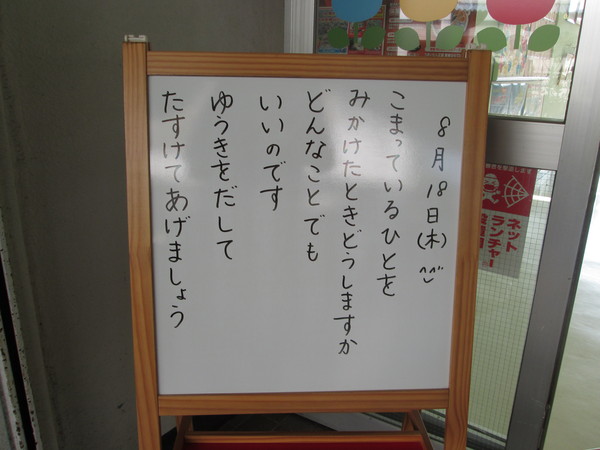 8月18日(木)^^
こまっているひとを
みかけたときどうしますか
どんなことでも
いいのです
ゆうきをだして
たすけてあげましょう
ネット
ランチャー